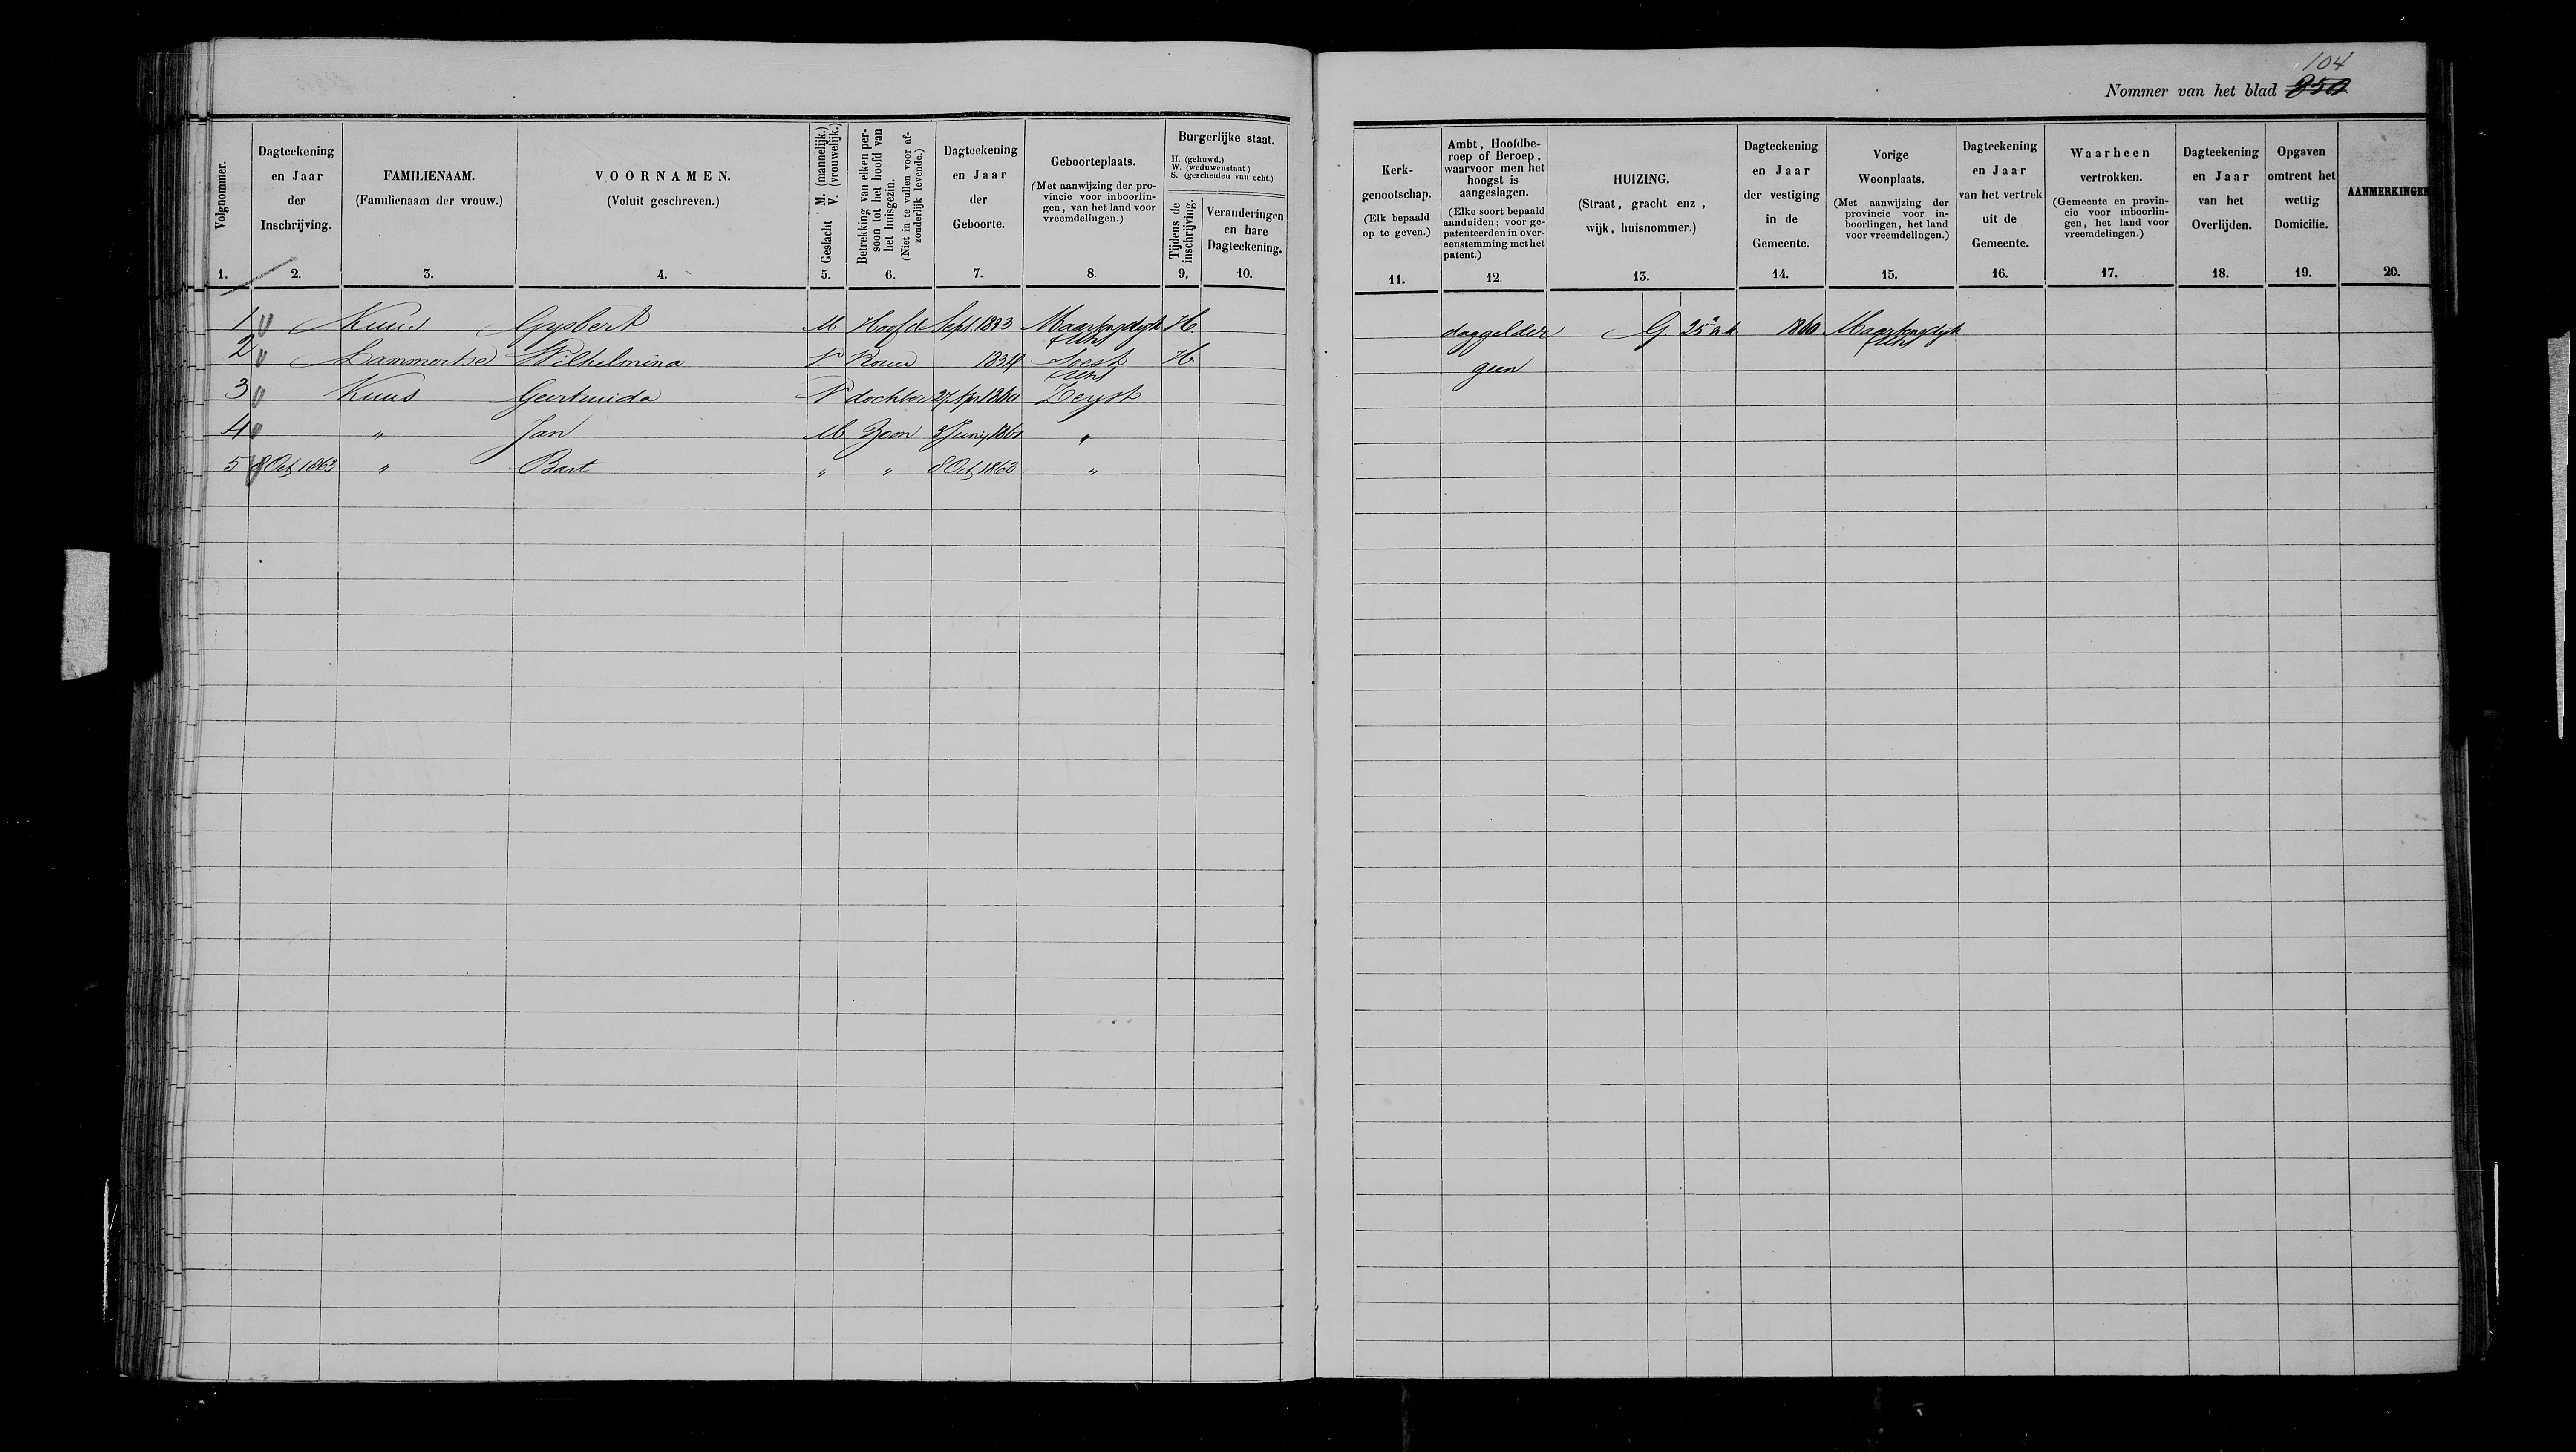 104
Nommer van het blad 350
Volgnommer. 1.
Dagteekening en Jaar der Inschrijving. 2.
FAMILIENAAM. (Familienaam der vrouw.) 3.
VOORNAMEN. (Voluit geschreven.) 4.
Geslacht M. (mannelijk.) V. (vrouwelijk.) 5.
Betrekking van elken persoon tot het hoofd van het huisgezin. (Niet in te vullen voor afzonderlijk levende.) 6.
Dagteekening en Jaar der Geboorte. 7.
Geboorteplaats. (Met aanwijzing der provincie voor inboorlingen, van het land voor vreemdelingen.) 8.
Burgerlijke staat. H. (gehuwd.) W. (weduwenstaat) S. (gescheiden van echt.)
Tijdens de inschrijving. 9.
Veranderingen en hare Dagteekening. 10.
Kerkgenootschap. (Elk bepaald op te geven.) 11.
Ambt, Hoofdberoep of Beroep, waarvoor men het hoogst is aangeslagen. (Elke soort bepaald aanduiden; voor gepatenteerden in overeenstemming met het patent.) 12.
HUIZING. (Straat, gracht enz, wijk, huisnommer.) 13.
Dagteekening en Jaar der vestiging in de Gemeente. 14.
Vorige Woonplaats. (Met aanwijzing der provincie voor inboorlingen, het land voor vreemdelingen.) 15.
Dagteekening en Jaar van het vertrek uit de Gemeente. 16.
Waarheen vertrokken. (Gemeente en provincie voor inboorlingen, het land voor vreemdelingen.) 17.
Dagteekening en Jaar van het Overlijden. 18.
Opgaven omtrent het wettig Domicilie. 19.
AANMERKINGEN 20.
1 Kuus Gysbert M Hoofd Sept. 1833 Maartensdyk Utr H daggelder G 25 a 1860 Maartensdyk Utr
2 Lammertse Wilhelmina V. Vrouw 1834 Soest Utr H geen
3 Kuus Geertruida V dochter 27 Apr 1860 Zeyst
4 " Jan M Zoon 3 Junij 1861 "
5 8 Oct 1863 " Bart " " 8 Oct 1863 "